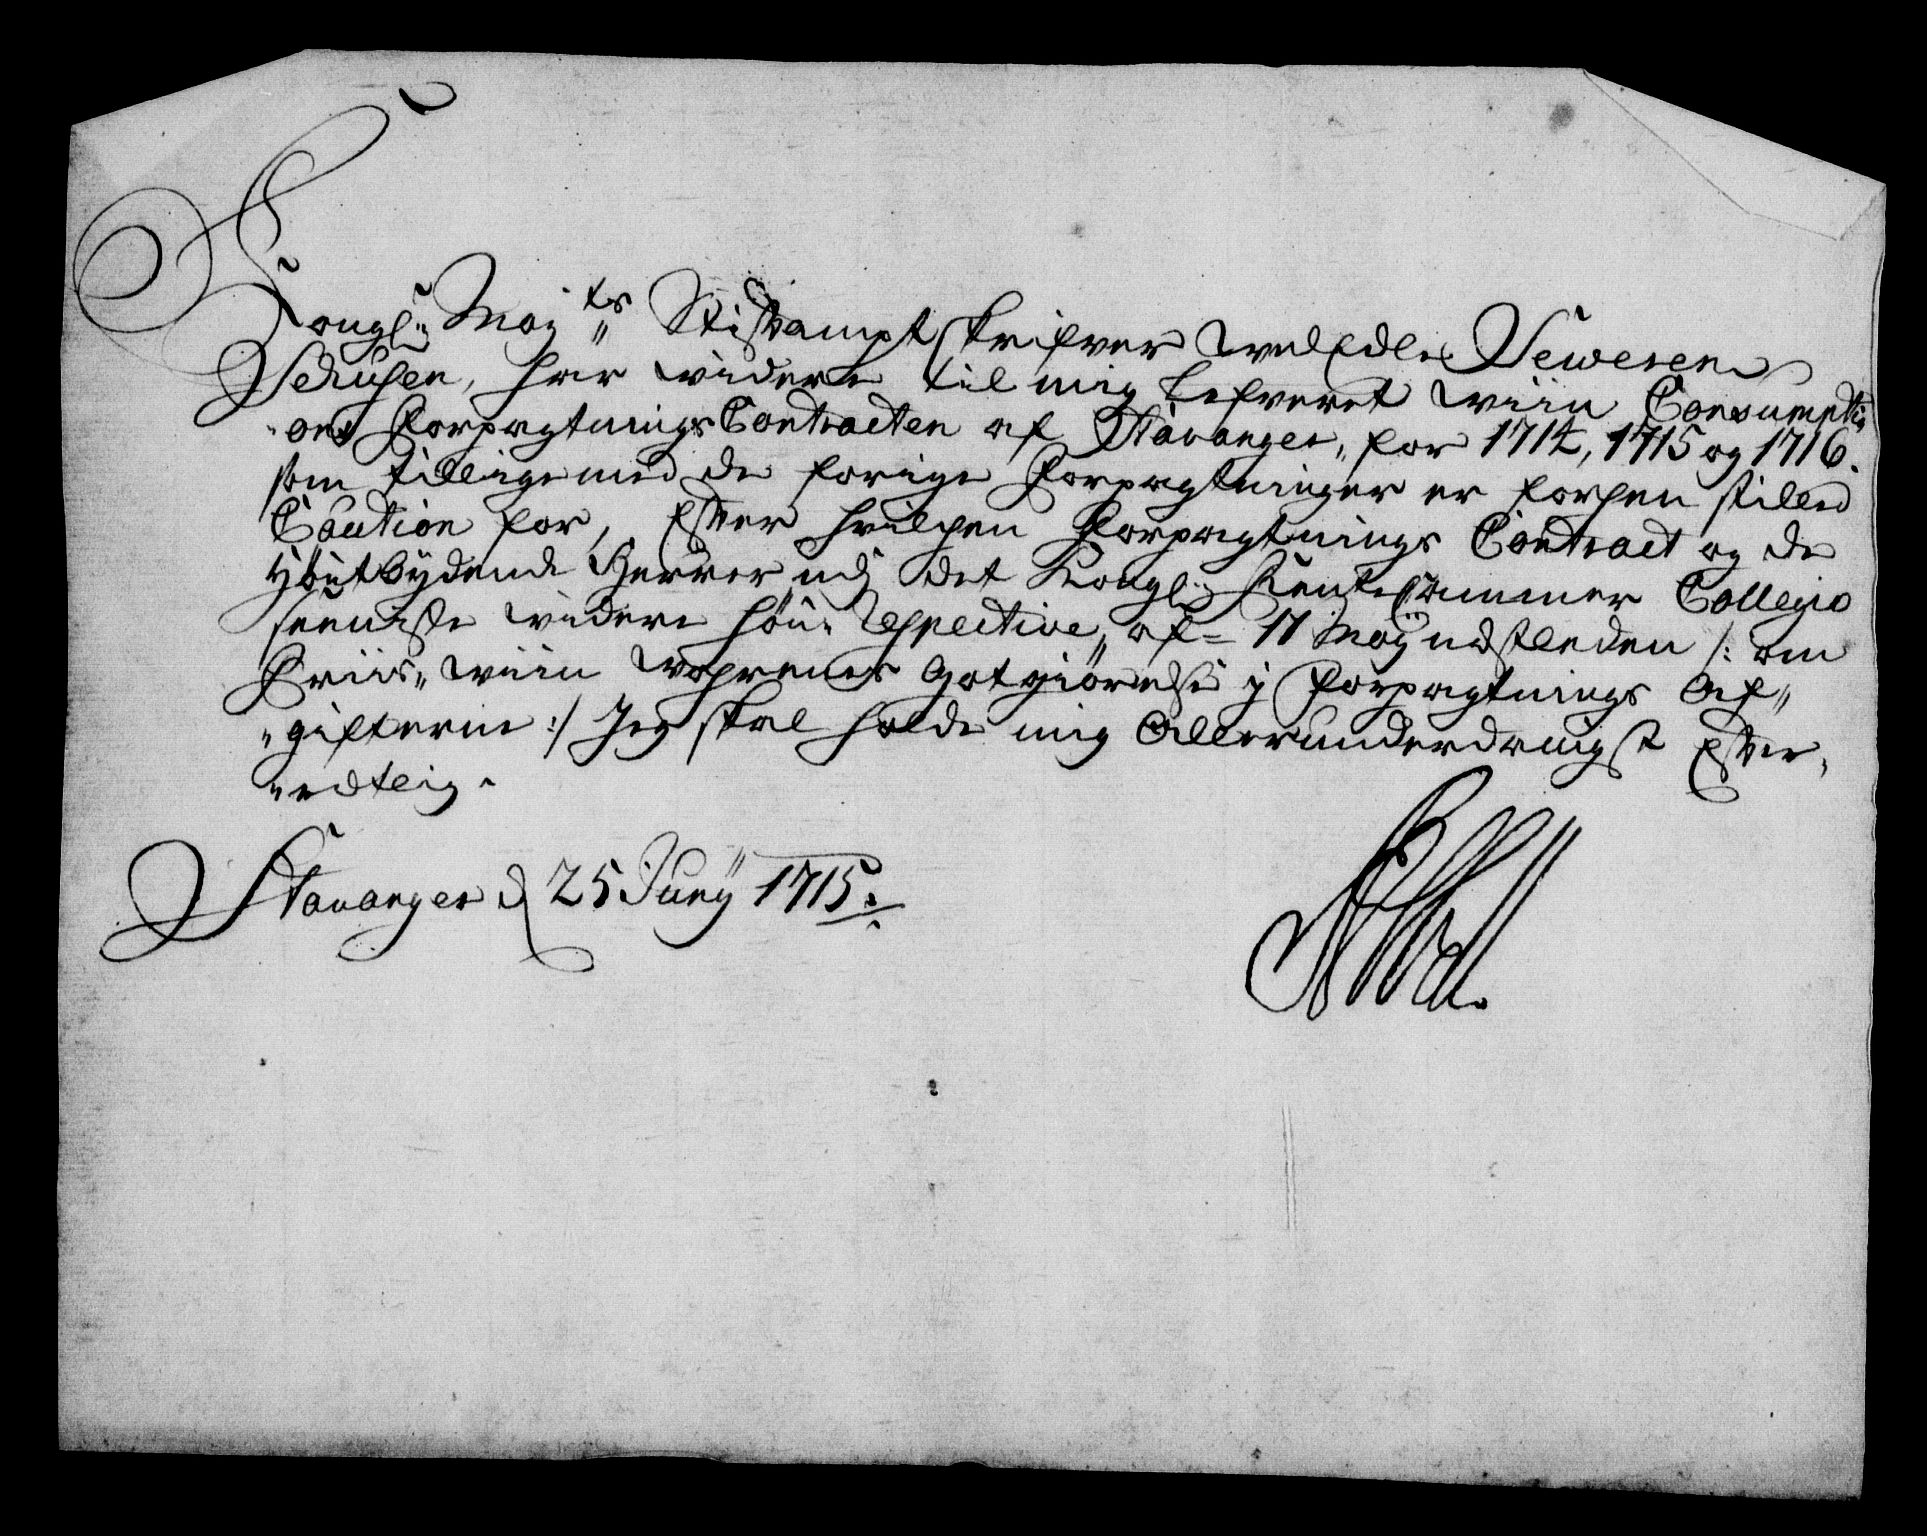 Kongl: May:ts Stiftsamptskrifver welEdle Severen
Schusen, har widere til mig lefveret Wiin Consumpti
ons ForpagtningsContracten af Stavanger, for 1714, 1715 og 1716.
som tillige med de forige Forpagtninger er forhen stilled
Caution for, Efter hvilchen Forpagtnings Contract og de
Høÿtbÿdende Herrer udj det Kongl: RenteCammer Collegio
seeniste widere Respective, af 11 Maÿ udstleden /: om
Priis, wiin Gotgiörelse j Forpagtnings Af
gifterne :/ Jeg skal holde mig Allerunderdanigst Efter
retlig.
Stavanger d 25 Junÿ 1715.